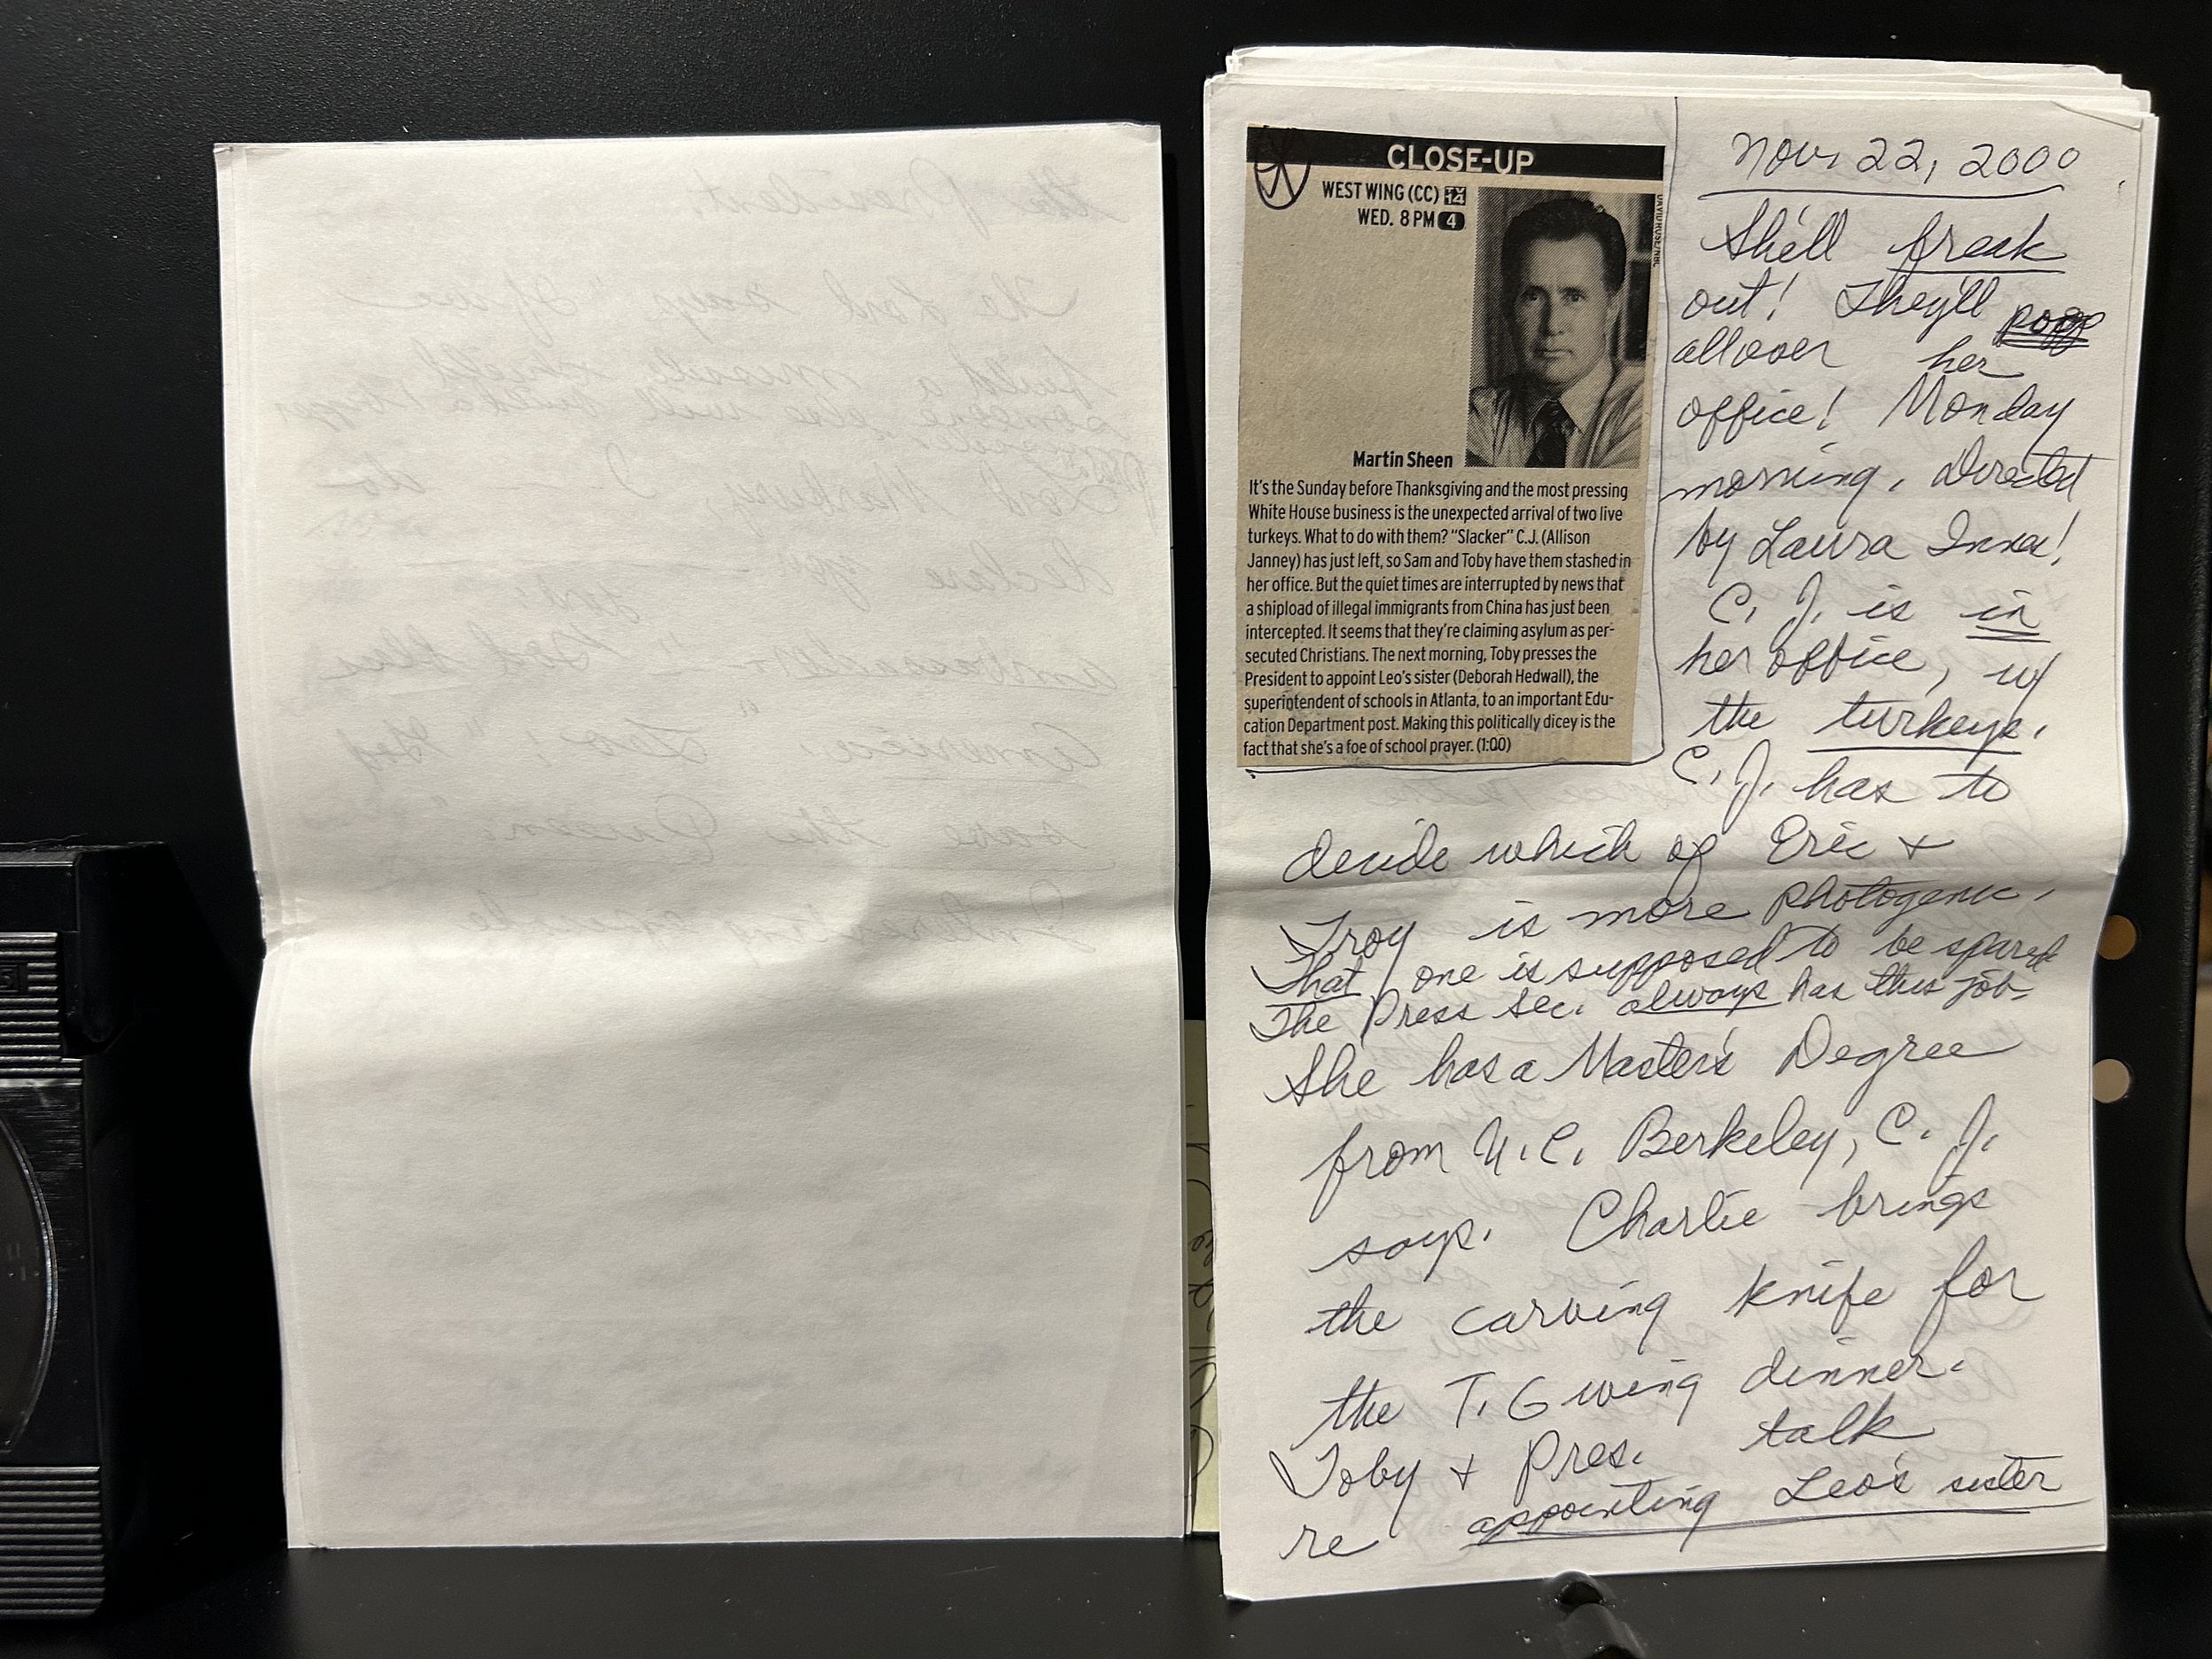 the President.
The Lord says "If we
build a missile shield,
someone else will build a bigger
missile.
Lord Marbury, I do
declare you
ambassador." "God bless
America" Leo: "God
save the Queen."
CLOSE-UP
WEST WING (CC) TV 14
WED. 8 PM 4
DAVID ROSE/NBC
Martin Sheen
It's the Sunday before Thanksgiving and the most pressing
White House business is the unexpected arrival of two live
turkeys. What to do with them? "Slacker" C.J. (Allison
Janney) has just left, so Sam and Toby have them stashed in
her office. But the quiet times are interrupted by news that
a shipload of illegal immigrants from China has just been
intercepted. It seems that they're claiming asylum as per-
secuted Christians. The next morning, Toby presses the
President to appoint Leo's sister (Deborah Hedwall), the
superintendent of schools in Atlanta, to an important Edu-
cation Department post. Making this politically dicey is the
fact that she's a foe of school prayer. (1:00)
Nov. 22, 2000
She'll freak
out! They'll poop
all over her
office! Monday
morning. Directed
by Laura Innes!
C. J. is in
her office, w/
the turkeys.
C. J. has to
decide which of Eric +
Troy is more photogenic.
That one is supposed to be spared
The Press Sec. always has this job-
She has a Master's Degree
from U.C. Berkeley, C. J.
says. Charlie brings
the carving knife for
the T. Giving dinner.
Toby + Pres. talk
re appointing Leo's sister